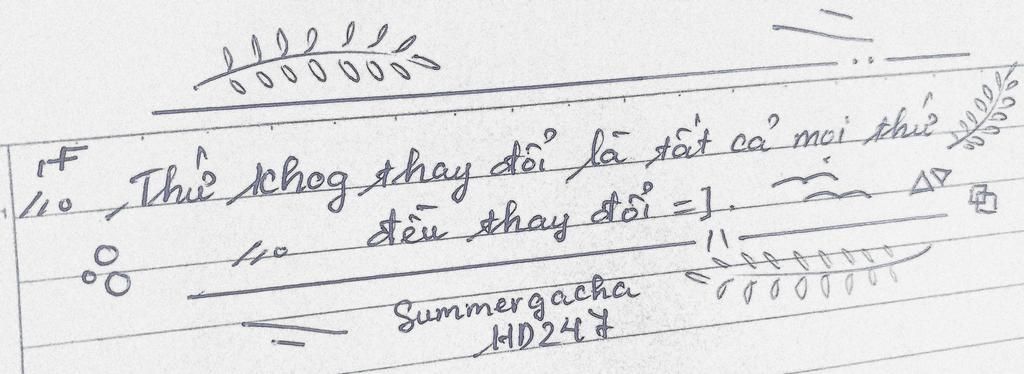 Thứ khog thay đổi là tất cả mọi thứ
đều thay đổi =].
Summergacha
HD247